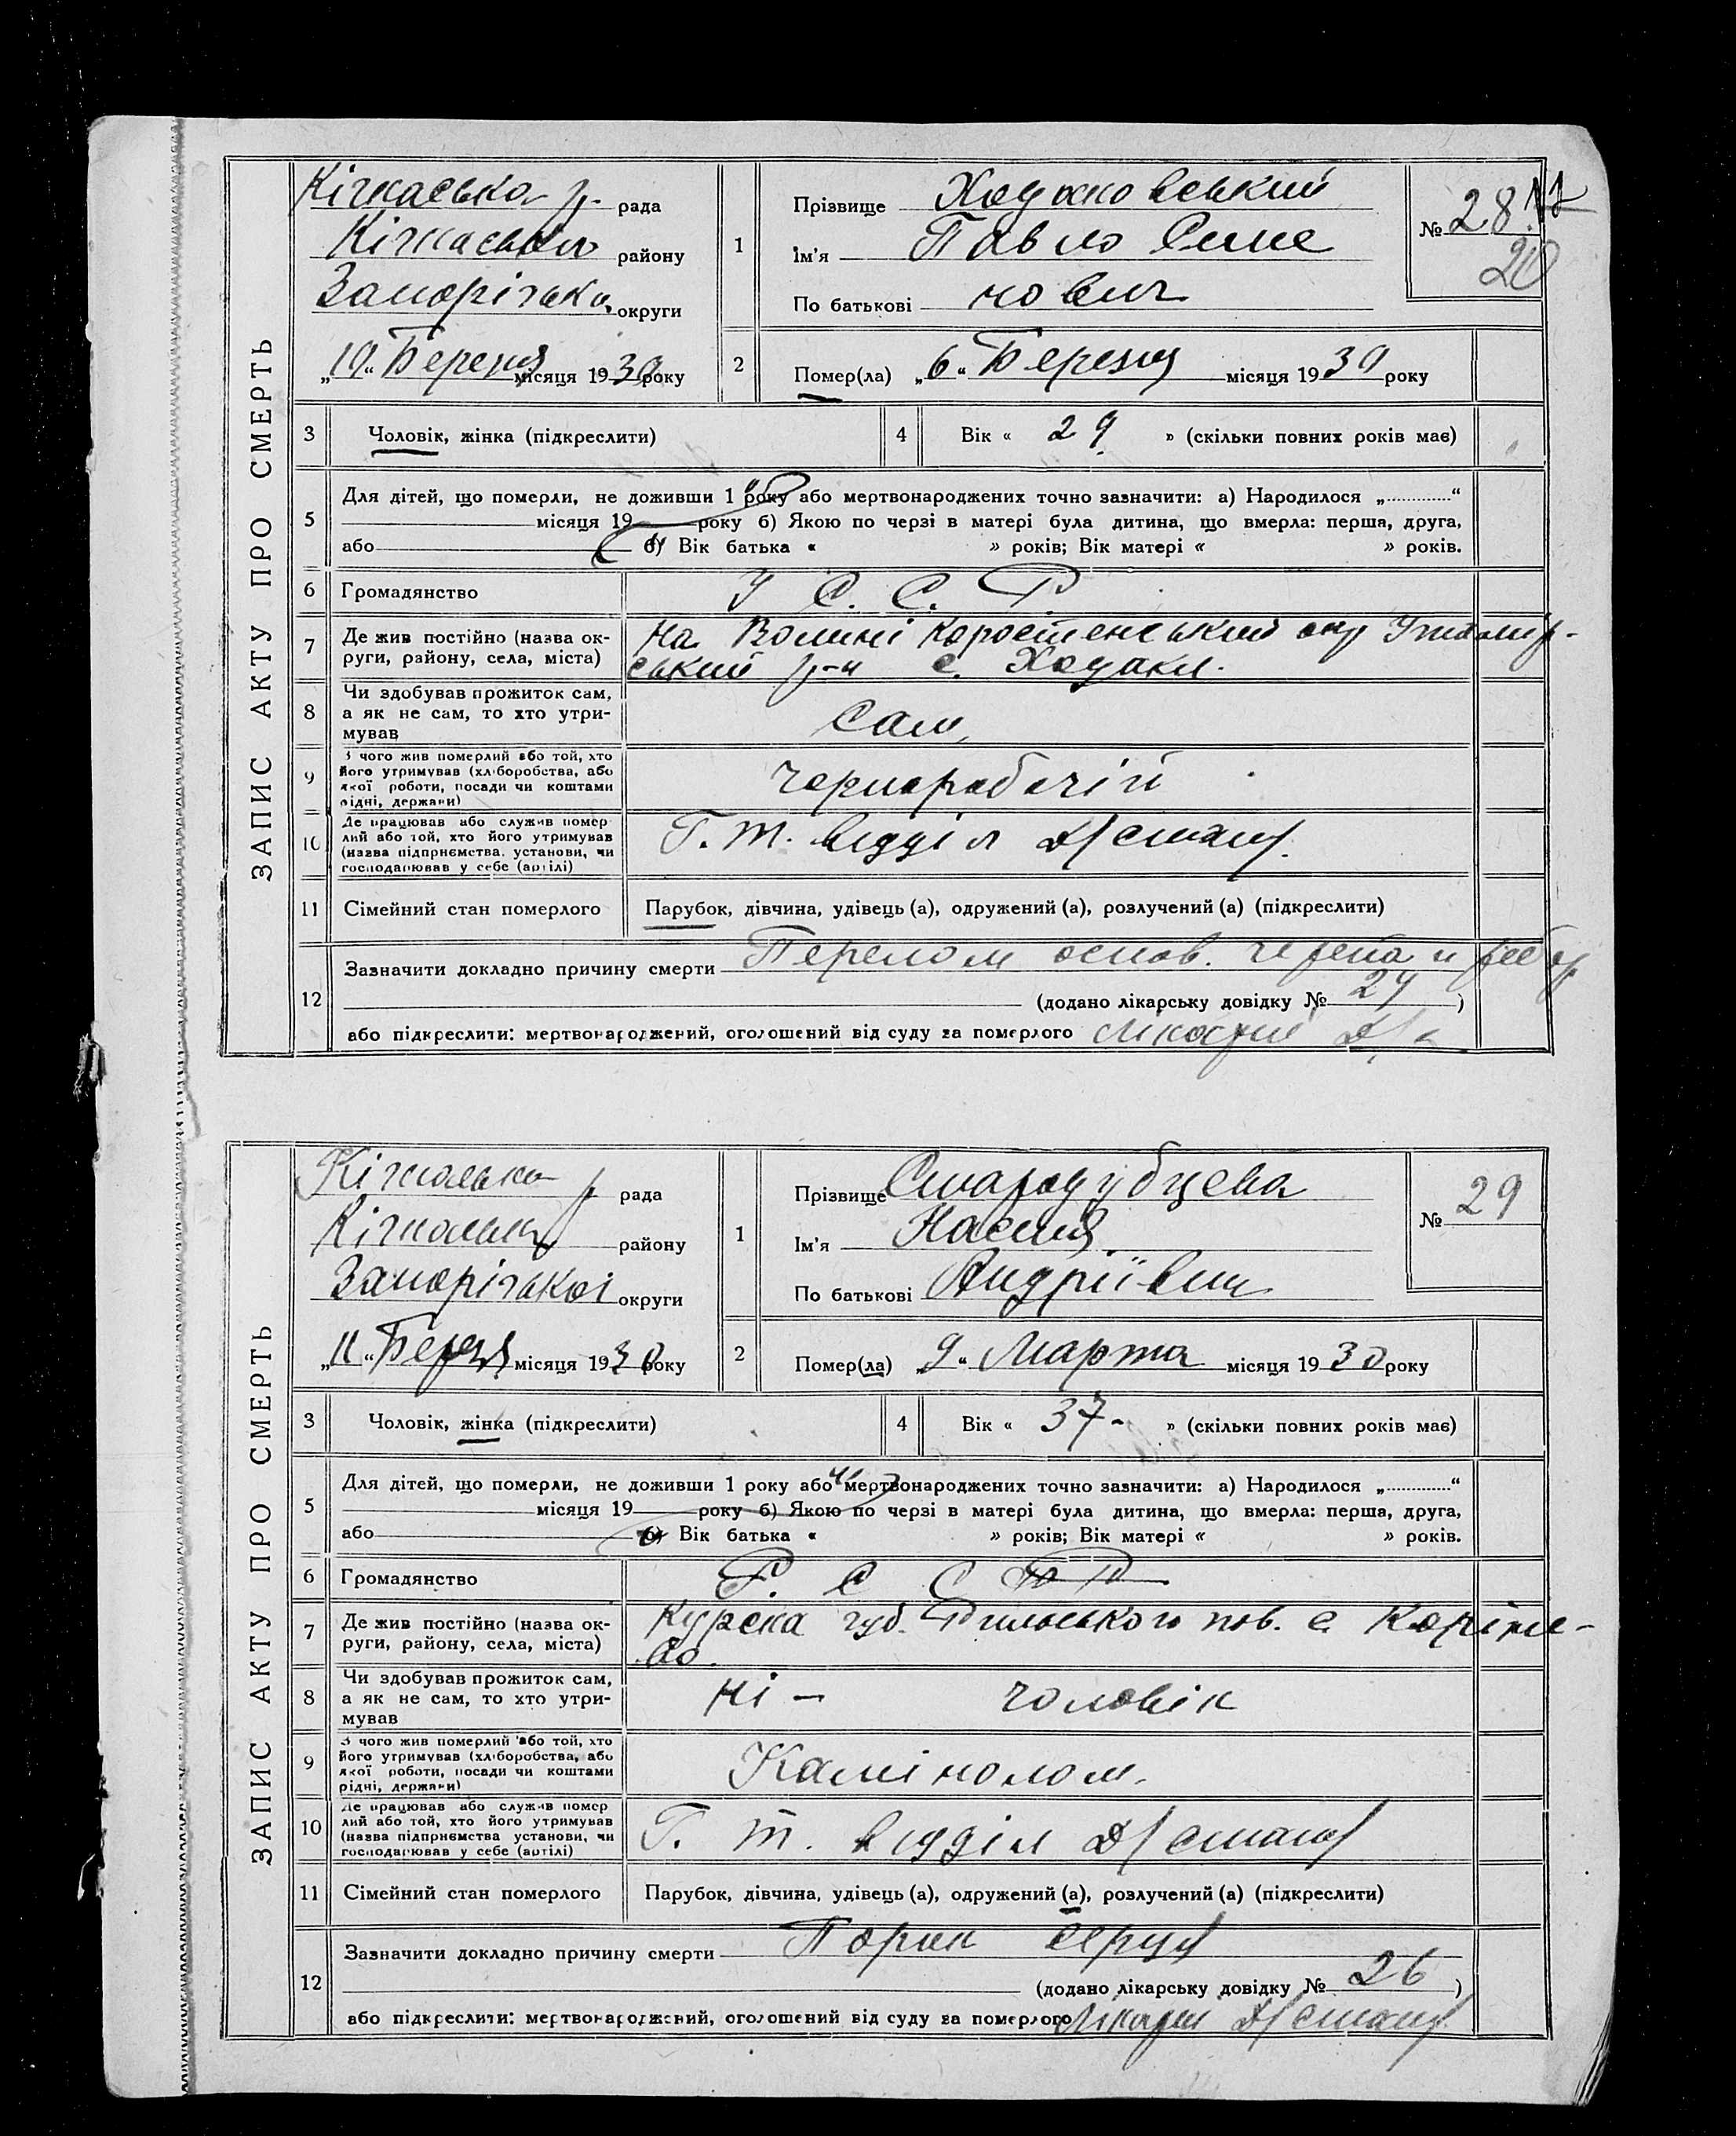 ЗАПИС АКТУ ПРО СМЕРТЬ
Кічкаська р. рада
Кічкаського району
Запорізької округи
„10“ Березня місяця 1930 року
1
Прізвище Ходаковський
Ім'я Павло Семе
По батькові нович
№ 28
20
2
Помер(ла) „6“ Березня місяця 1930 року
3 Чоловік, жінка (підкреслити)
4 Вік « 29 » (скільки повних років має)
5
Для дітей, що померли, не доживши 1 року або мертвонароджених точно зазначити: а) Народилося „............“
місяця 19 року б) Якою по черзі в матері була дитина, що вмерла: перша, друга,
або б) Вік батька « » років; Вік матері « » років.
6 Громадянство У С. С. Р
7 Де жив постійно (назва ок-
руги, району, села, міста)
На Волині Коростенський окр
ський р-н с. Ходаки.
8 Чи здобував прожиток сам,
а як не сам, то хто утри-
мував
Сам
9 З чого жив померлий або той, хто
його утримував (хліборобства, або
якої роботи, посади чи коштами
рідні, держави)
чорноробочій
10 Де працював або служив помер
лий або той, хто його утримував
(назва підприємства, установи, чи
господарював у себе (артілі)
Г. Т. відділ Д/стану.
11 Сімейний стан померлого Парубок, дівчина, удівець (а), одружений (а), розлучений (а) (підкреслити)
12
Зазначити докладно причину смерти Перелом основ. черепа и ребер
(додано лікарську довідку № 24 )
або підкреслити: мертвонароджений, оголошений від суду за померлого Лікарні
ЗАПИС АКТУ ПРО СМЕРТЬ
Кічкаська р рада
Кічкаського району
Запорізької округи
„11“ Березня місяця 1930 року
1
Прізвище Стародубцева
Ім'я Настя
По батькові Андріївна
№ 29
2
Помер(ла) „9“ Марта місяця 1930 року
3 Чоловік, жінка (підкреслити)
4 Вік « 37- » (скільки повних років має)
5
Для дітей, що померли, не доживши 1 року або мертвонароджених точно зазначити: а) Народилося „............“
місяця 19 року б) Якою по черзі в матері була дитина, що вмерла: перша, друга,
або б) Вік батька « » років; Вік матері « » років.
6 Громадянство Р. С С
7 Де жив постійно (назва ок-
руги, району, села, міста)
Курска губ. Рильського пов. с Корене-
во.
8 Чи здобував прожиток сам,
а як не сам, то хто утри-
мував
Ні – чоловік
9 З чого жив померлий або той, хто
його утримував (хліборобства, або
якої роботи, посади чи коштами
рідні, держави)
Камінолом.
10 Де працював або служив помер
лий або той, хто його утримував
(назва підприємства установи, чи
господарював у себе (артілі)
Г. Т. відділ Д/стану
11 Сімейний стан померлого Парубок, дівчина, удівець (а), одружений (а), розлучений (а) (підкреслити)
12
Зазначити докладно причину смерти Порок серця
(додано лікарську довідку № 26 )
або підкреслити: мертвонароджений, оголошений від суду за померлого Лікарні Д/стану